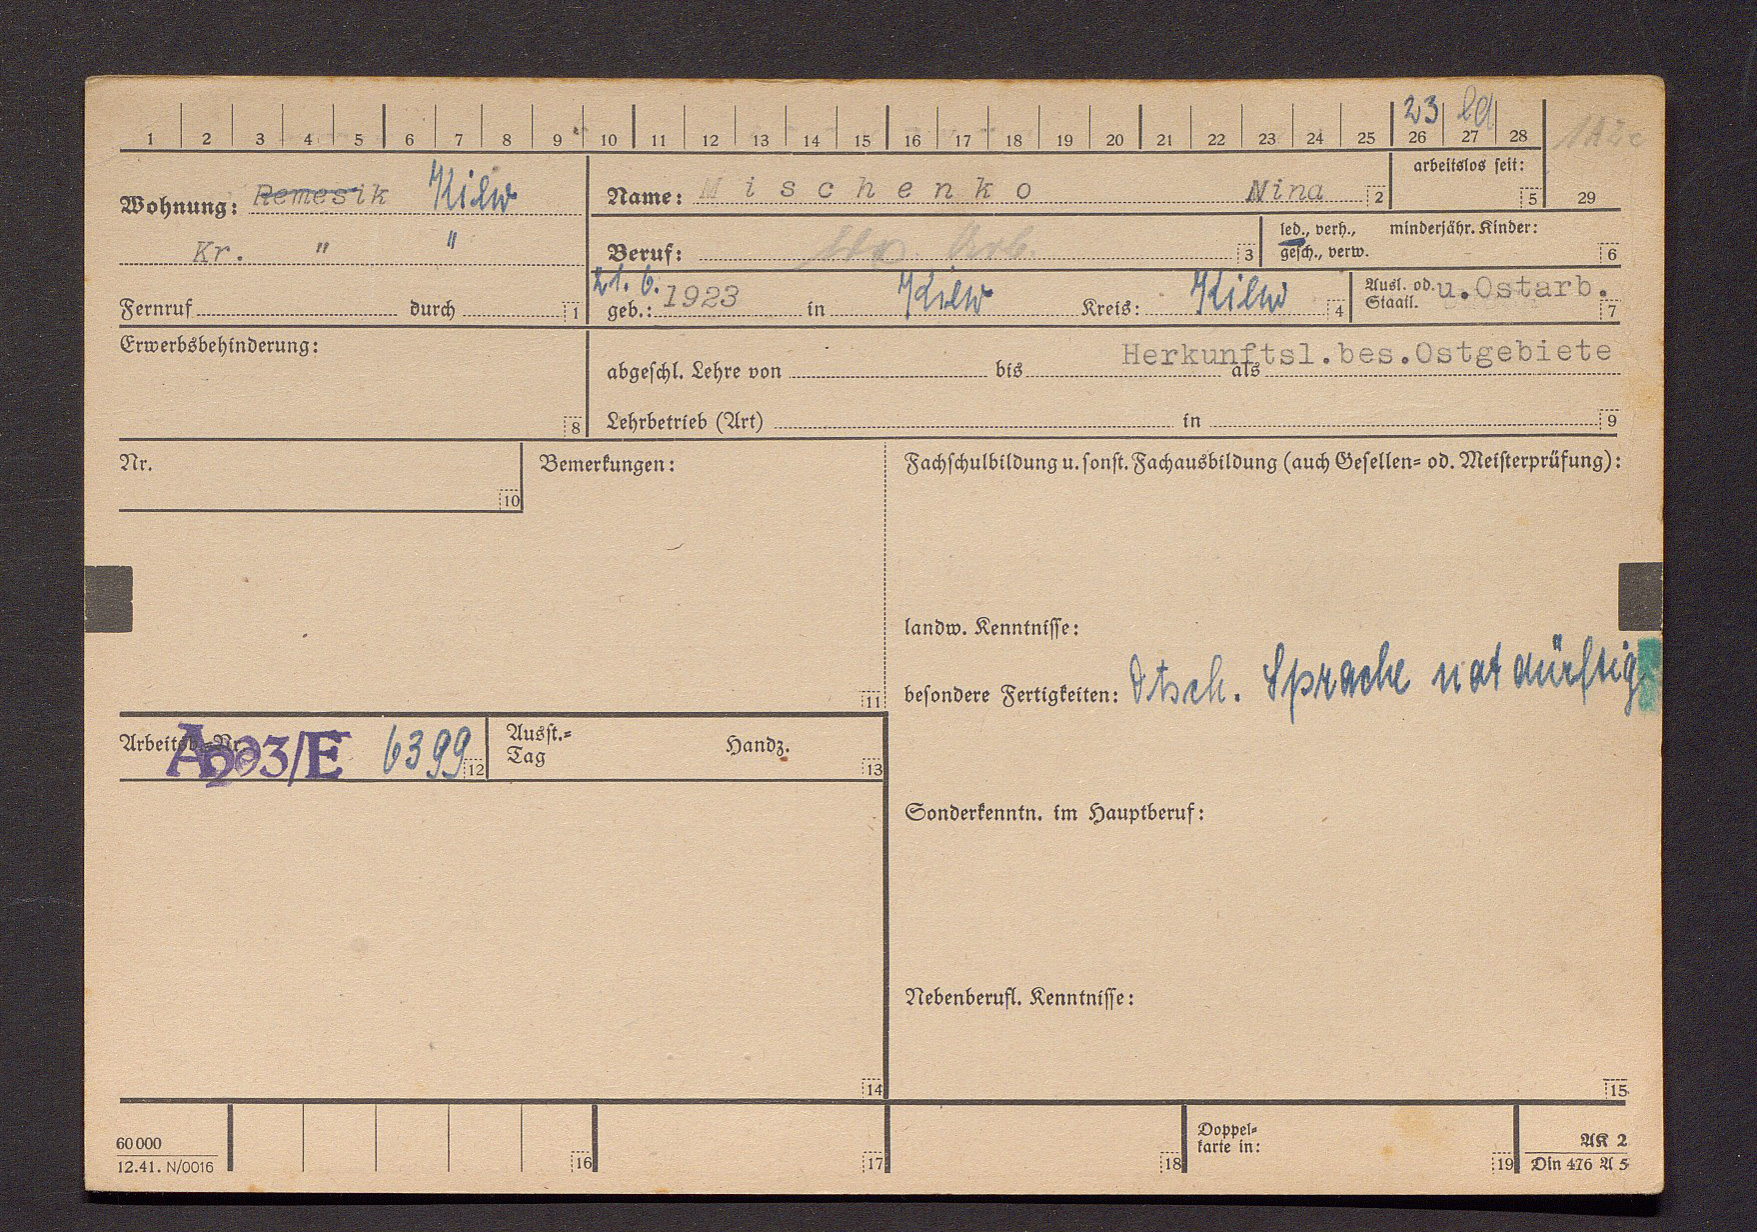 1 2 3 4 5 6 7 8 9 10 11 12 13 14 15 16 17 18 19 20 21 22 23 24 25 26 27 28
23
Wohnung: Remesik Kilw
Kr. " "
Fernruf durch 1
Name: Mischenko Nina 2
arbeitslos seit: 5
29
Beruf: Arb. 3
led., verh., minderjähr. Kinder:
gesch., verw. 6
21. 6.
geb.: 1923 in Kilw Kreis: Kilw 4
Ausl. od. u. Ostarb.
Staatl. 7
Erwerbsbehinderung:
8
Herkunftsl.bes.Ostgebiete
abgeschl. Lehre von bis als
Lehrbetrieb (Art) in 9
Nr.
10
Bemerkungen:
11
Fachschulbildung u. sonst. Fachausbildung (auch Gesellen= od. Meisterprüfung):
landw. Kenntnisse:
besondere Fertigkeiten: Dtsch. Sprache notdürftig
Arbeitsb.-Nr. A 293/E 6399 12
Ausst.=
Tag
Handz.
13
Sonderkenntn. im Hauptberuf:
Nebenberufl. Kenntnisse:
14
15
60 000
12.41. N/0016
16
17
18
Doppel=
karte in:
19
AK 2
Din 476 A 5